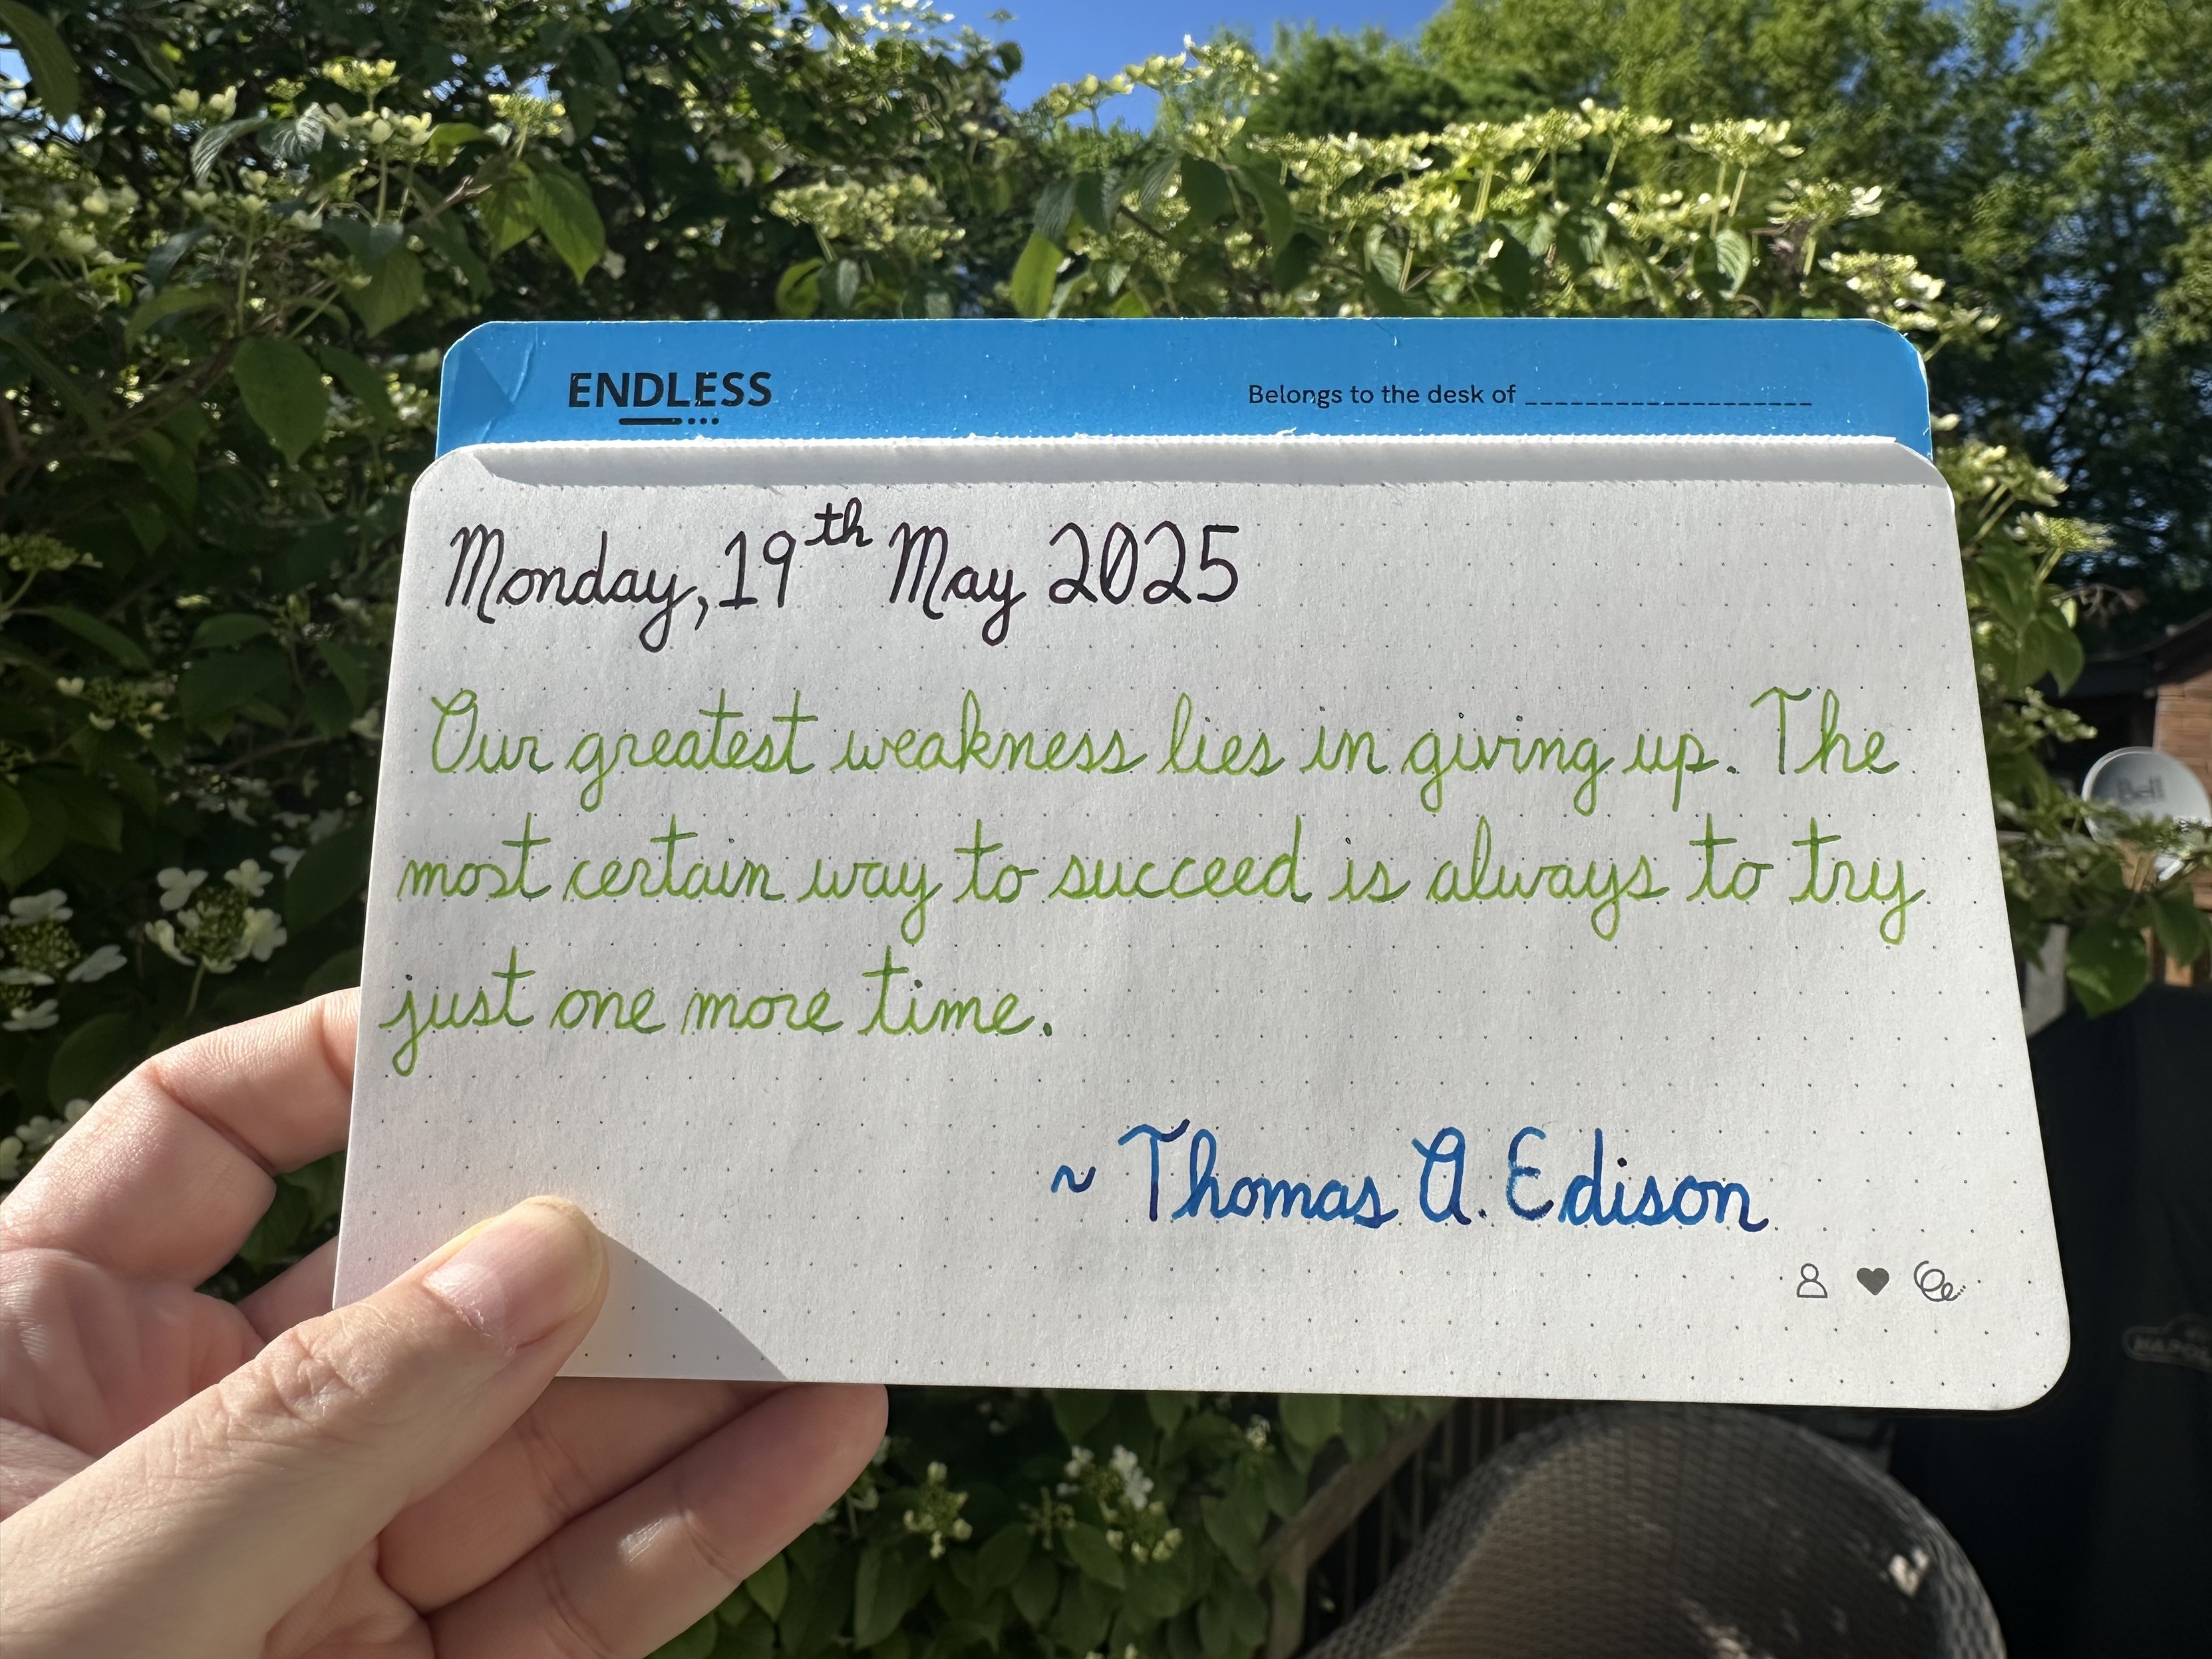 ENDLESS
Belongs to the desk of
Monday, 19th May 2025
Our greatest weakness lies in giving up. The
most certain way to succeed is always to try
just one more time.
~ Thomas A. Edison
Bell